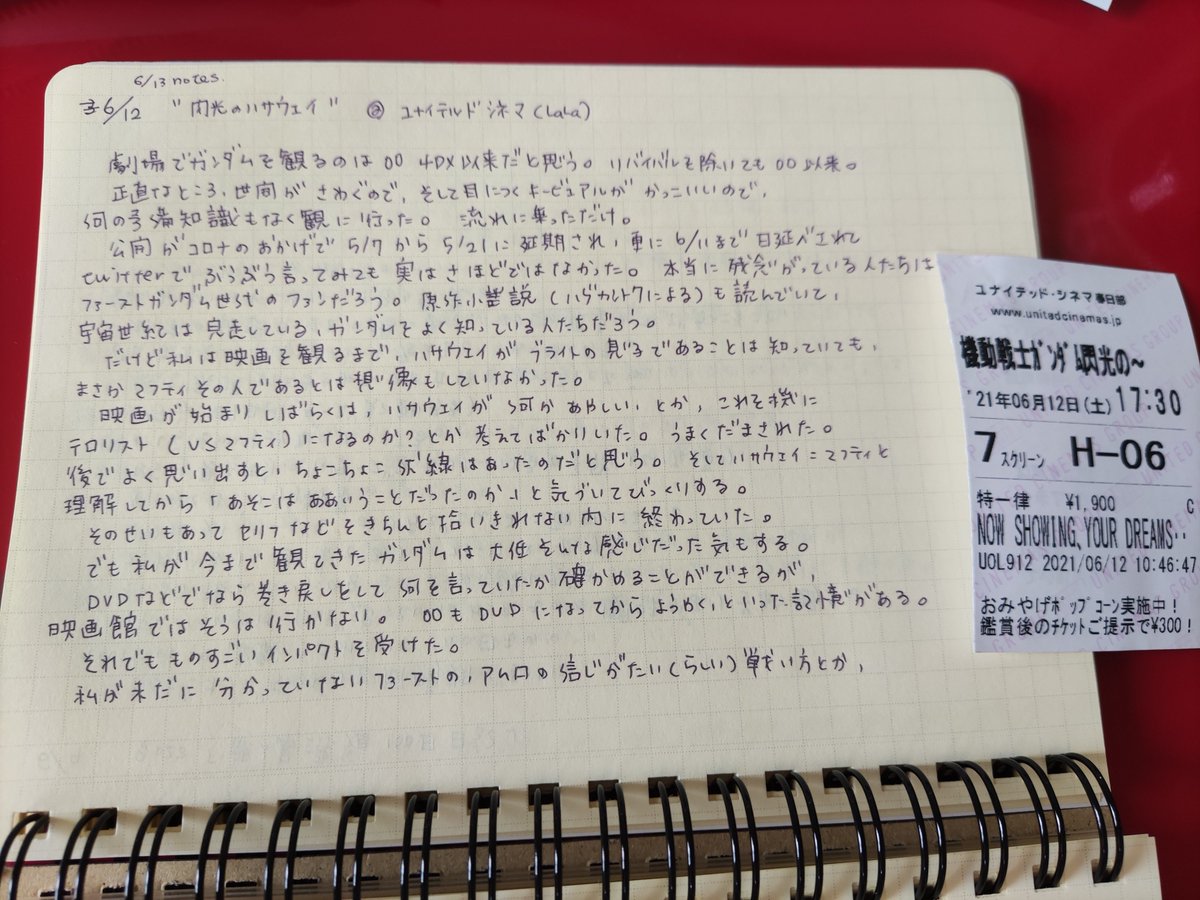 6/13 notes.
6/12 "閃光のハサウェイ" @ ユナイテルド シネマ (LaLa)
劇場でガンダムを観るのは 00 4DX以来だと思う。 リバイバルを除いても 00 以来。
正直なところ、世間が さわぐので、そして目につく キービュアルが かっこいいので、
何の予備知識もなく観に行った。 流れに乗っただけ。
公開がコロナのおかげで 5/7 から 5/21 に延期され、更に 6/11まで 日延べされて
twitterで ぶうぶう言ってみても 実は さほどではなかった。 本当に残念がっている人たちは
ファーストガンダム世代の ファンだろう。 原作小説 ( による) も読んでいて、
宇宙世紀は 完走している、ガンダムを よく知っている人たちだろう。
だけど私は映画を観るまで、ハサウェイが ブライトの息子であることは知っていても、
まさか マフティその人であるとは想像もしていなかった。
映画が始まり しばらくは、ハサウェイが 何か あやしい、とか、これを機に
テロリスト (VSマフティ) になるのか? とか 考えてばかりいた。 うまく だまされた。
後でよく思い出すと、ちょこちょこ 伏線はあったのだと思う。 そしてハサウェイ = マフティと
理解してから 「あそこは ああいうことだったのか」と気づいてびっくりする。
そのせいもあって セリフなどをきちんと 拾いきれない内に 終わっていた。
でも 私が今まで観てきた ガンダムは 大低 そんな感じだった気もする。
DVDなどでなら 巻き戻しをして 何を言っていたか 確かめることができるが、
映画館ではそうは行かない。 00も DVDになってから ようやく、といった記憶がある。
それでも ものすごい インパクトを受けた。
私が未だに 分かっていない ファーストの、アムロの 信じがたい(らしい) 戦い方とか、
ユナイテッド・シネマ春日部
www.unitedcinemas.jp
機動戦士ｶﾞﾝﾀﾞﾑ閃光の～
'21年06月12日(土) 17:30
7スクリーン H-06
特一律 ¥1,900 C
NOW SHOWING,YOUR DREAMS‥
UOL912 2021/06/12 10:46:47
おみやげﾎﾟｯﾌﾟｺｰﾝ実施中！
鑑賞後のﾁｹｯﾄご提示で¥300！